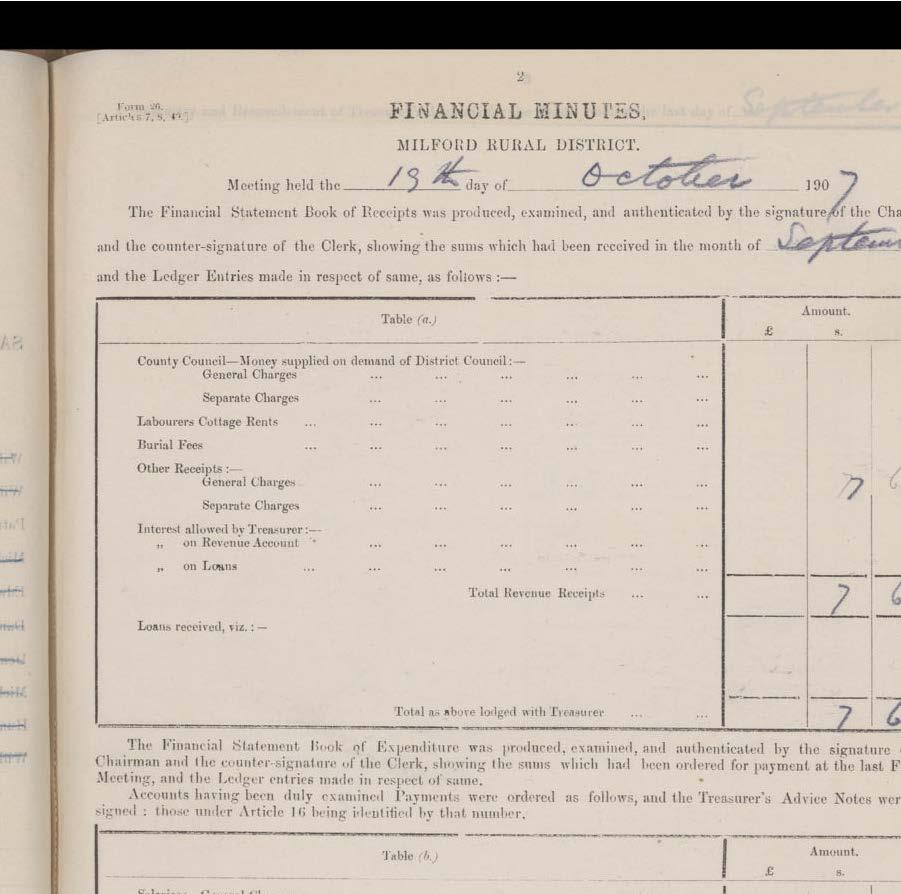 2
Form 26.
[Articles 7, 8, 49.]
FINANCIAL MINUTES,
MILFORD RURAL DISTRICT.
Meeting held the 19th day of October 1907
The Financial Statement Book of Receipts was produced, examined, and authenticated by the signature of the Cha
and the counter-signature of the Clerk, showing the sums which had been received in the month of Septem
and the Ledger Entries made in respect of same, as follows :—
Table (a.) Amount.
£ s.
County Council—Money supplied on demand of District Council:—
General Charges ... ... ... ... ... ...
Separate Charges ... ... ... ... ... ...
Labourers Cottage Rents ... ... ... ... ... ... ...
Burial Fees ... ... ... ... ... ... ...
Other Receipts :—
General Charges ... ... ... ... ... ... 7 6
Separate Charges ... ... ... ... ... ...
Interest allowed by Treasurer :—
„ on Revenue Account ... ... ... ... ... ...
„ on Loans ... ... ... ... ... ... ...
Total Revenue Receipts ... ... 7 6
Loans received, viz. : —
Total as above lodged with Treasurer ... ... 7 6
The Financial Statement Book of Expenditure was produced, examined, and authenticated by the signature
Chairman and the counter-signature of the Clerk, showing the sums which had been ordered for payment at the last F
Meeting, and the Ledger entries made in respect of same.
Accounts having been duly examined Payments were ordered as follows, and the Treasurer's Advice Notes wer
signed : those under Article 16 being identified by that number.
Table (b.) Amount.
£ s.